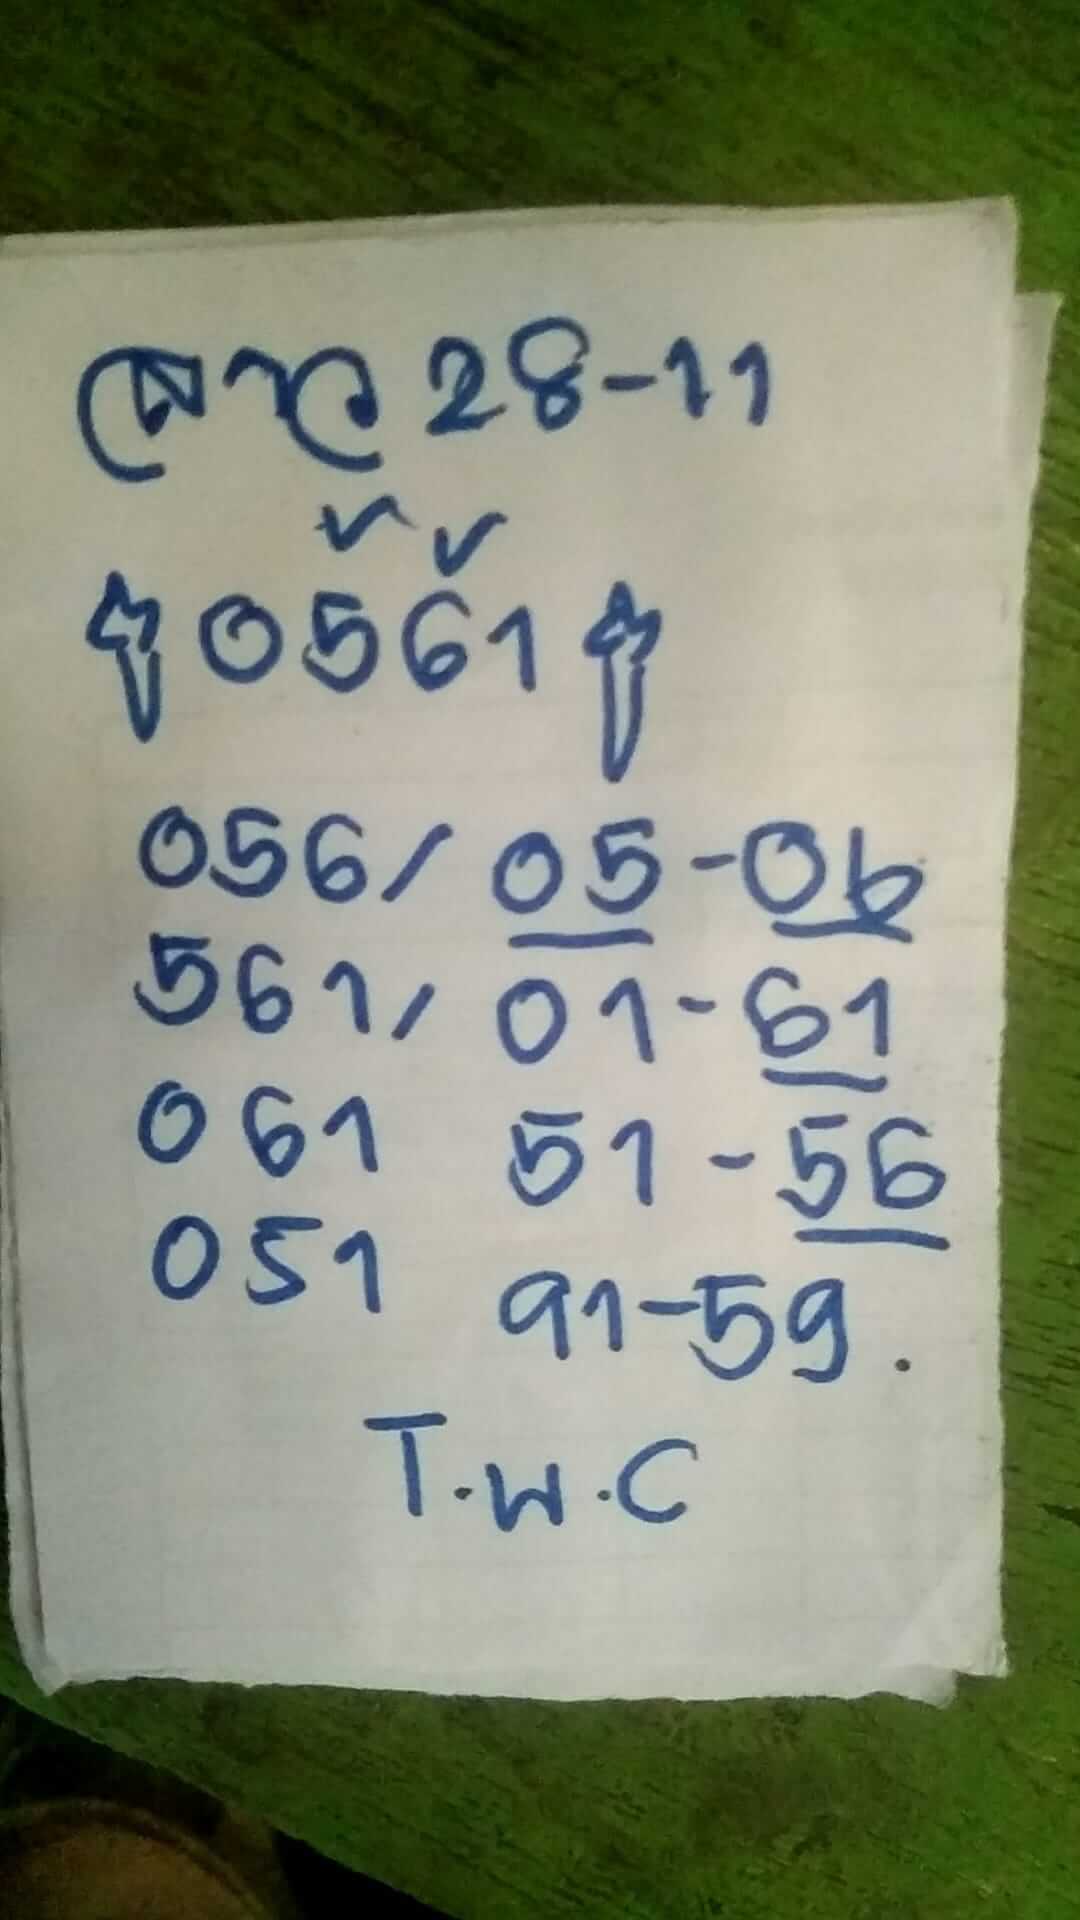 ลาว 28-11
0561
056/ 05-06
561/ 01-61
061 51-56
051 91-59.
T.W.C